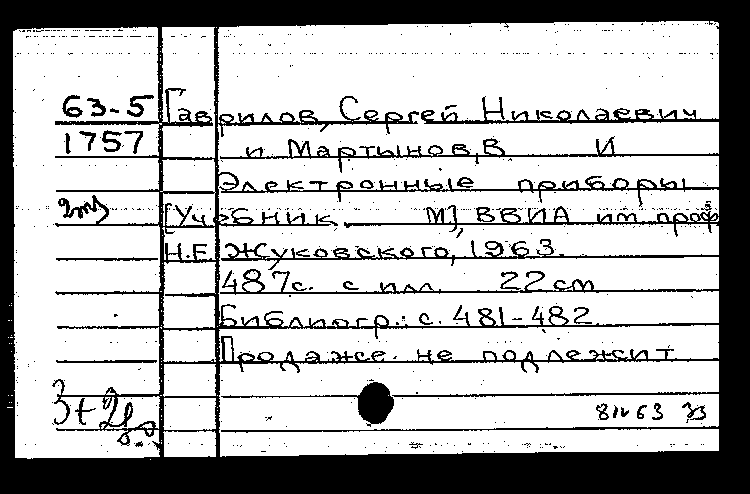 63-5 Гаврилов, Сергей Николаевич
1757 и Мартынов, В И
Электронные приборы
[Учебник М], ВВИА им проф
Н.Е. Жуковского, 1963.
487с. с илл. 22 см
Библиогр.: с. 481-482
Продаже не подлежит
3+2
63